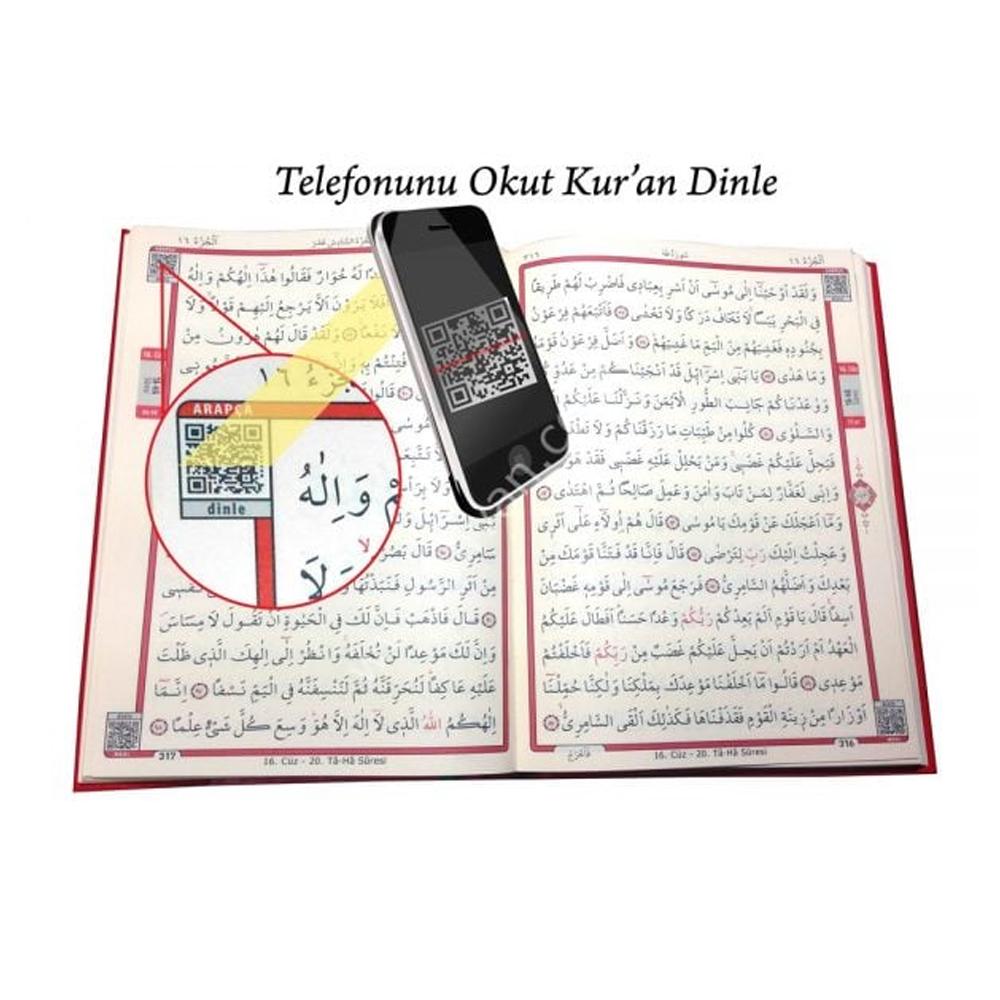 Telefonunu Okut Kur’an Dinle
اَلْجُزْءُ ١٦
سُورَةُ طٰهٰ
٣١٦
وَلَقَدْ اَوْحَيْنَٓا اِلٰى مُوسٰٓى اَنْ اَسْرِ بِعِبَادٖى فَاضْرِبْ لَهُمْ طَرٖيقًا
فِى الْبَحْرِ يَبَسًاۙ لَا تَخَافُ دَرَكًا وَلَا تَخْشٰى ﴿٧٧﴾ فَاَتْبَعَهُمْ فِرْعَوْنُ
بِجُنُودِهٖ فَغَشِيَهُمْ مِنَ الْيَمِّ مَا غَشِيَهُمْ ﴿٧٨﴾ وَاَضَلَّ فِرْعَوْنُ قَوْمَهُ
وَمَا هَدٰى ﴿٧٩﴾ يَا بَنٖٓى اِسْرَٓائٖلَ قَدْ اَنْجَيْنَاكُمْ مِنْ عَدُوِّكُمْ
وَوٰعَدْنَاكُمْ جَانِبَ الطُّورِ الْاَيْمَنَ وَنَزَّلْنَا عَلَيْكُمُ
وَالسَّلْوٰى ﴿٨٠﴾ كُلُوا مِنْ طَيِّبَاتِ مَا رَزَقْنَاكُمْ وَلَا تَطْغَوْا
فَيَحِلَّ عَلَيْكُمْ غَضَبٖىۚ وَمَنْ يَحْلِلْ عَلَيْهِ غَضَبٖى فَقَدْ هَوٰى
وَاِنّٖى لَغَفَّارٌ لِمَنْ تَابَ وَاٰمَنَ وَعَمِلَ صَالِحًا ثُمَّ اهْتَدٰى ﴿٨٢﴾
وَمَٓا اَعْجَلَكَ عَنْ قَوْمِكَ يَا مُوسٰى ﴿٨٣﴾ قَالَ هُمْ اُولَٓاءِ عَلٰٓى اَثَرٖى
وَعَجِلْتُ اِلَيْكَ رَبِّ لِتَرْضٰى ﴿٨٤﴾ قَالَ فَاِنَّا قَدْ فَتَنَّا قَوْمَكَ مِنْ
بَعْدِكَ وَاَضَلَّهُمُ السَّامِرِىُّ ﴿٨٥﴾ فَرَجَعَ مُوسٰٓى اِلٰى قَوْمِهٖ غَضْبَانَ
اَسِفًاۚ قَالَ يَا قَوْمِ اَلَمْ يَعِدْكُمْ رَبُّكُمْ وَعْدًا حَسَنًاۜ اَفَطَالَ عَلَيْكُمُ
الْعَهْدُ اَمْ اَرَدْتُمْ اَنْ يَحِلَّ عَلَيْكُمْ غَضَبٌ مِنْ رَبِّكُمْ فَاَخْلَفْتُمْ
مَوْعِدٖى ﴿٨٦﴾ قَالُوا مَٓا اَخْلَفْنَا مَوْعِدَكَ بِمَلْكِنَا وَلٰكِنَّا حُمِّلْنَٓا
اَوْزَارًا مِنْ زٖينَةِ الْقَوْمِ فَقَذَفْنَاهَا فَكَذٰلِكَ اَلْقَى السَّامِرِىُّۙ ﴿٨٧﴾
فَاَخْرَجَ
16. Cüz - 20. Tâ-Hâ Sûresi
316
اَلْجُزْءُ ١٦
لَهُ خُوَارٌ فَقَالُوا هٰذَٓا اِلٰهُكُمْ وَاِلٰهُ
اَفَلَا يَرَوْنَ اَلَّا يَرْجِعُ اِلَيْهِمْ قَوْلًاۙ وَلَا
نَفْعًا ﴿٨٩﴾ وَلَقَدْ قَالَ لَهُمْ هٰرُونُ مِنْ
فُتِنْتُمْ بِهٖۚ
قَالُوا
مُوسٰى
جُزْءُ ١٦
ARAPÇA
dinle
وَاِلٰهُ
لَا
بَنٖٓى اِسْرَٓائٖلَ
سَامِرِىُّ ﴿٩٥﴾ قَالَ بَصُرْتُ
مِنْ اَثَرِ الرَّسُولِ فَنَبَذْتُهَا
نَفْسٖى
﴿٩٦﴾ قَالَ فَاذْهَبْ فَاِنَّ لَكَ فِى الْحَيٰوةِ اَنْ تَقُولَ لَا مِسَاسَ
وَاِنَّ لَكَ مَوْعِدًا لَنْ تُخْلَفَهُۚ وَانْظُرْ اِلٰٓى اِلٰهِكَ الَّذٖى ظَلْتَ
عَلَيْهِ عَاكِفًاۜ لَنُحَرِّقَنَّهُ ثُمَّ لَنَنْسِفَنَّهُ فِى الْيَمِّ نَسْفًا ﴿٩٧﴾ اِنَّمَٓا
اِلٰهُكُمُ اللّٰهُ الَّذٖى لَٓا اِلٰهَ اِلَّا هُوَۜ وَسِعَ كُلَّ شَىْءٍ عِلْمًا ﴿٩٨﴾
317
16. Cüz - 20. Tâ-Hâ Sûresi